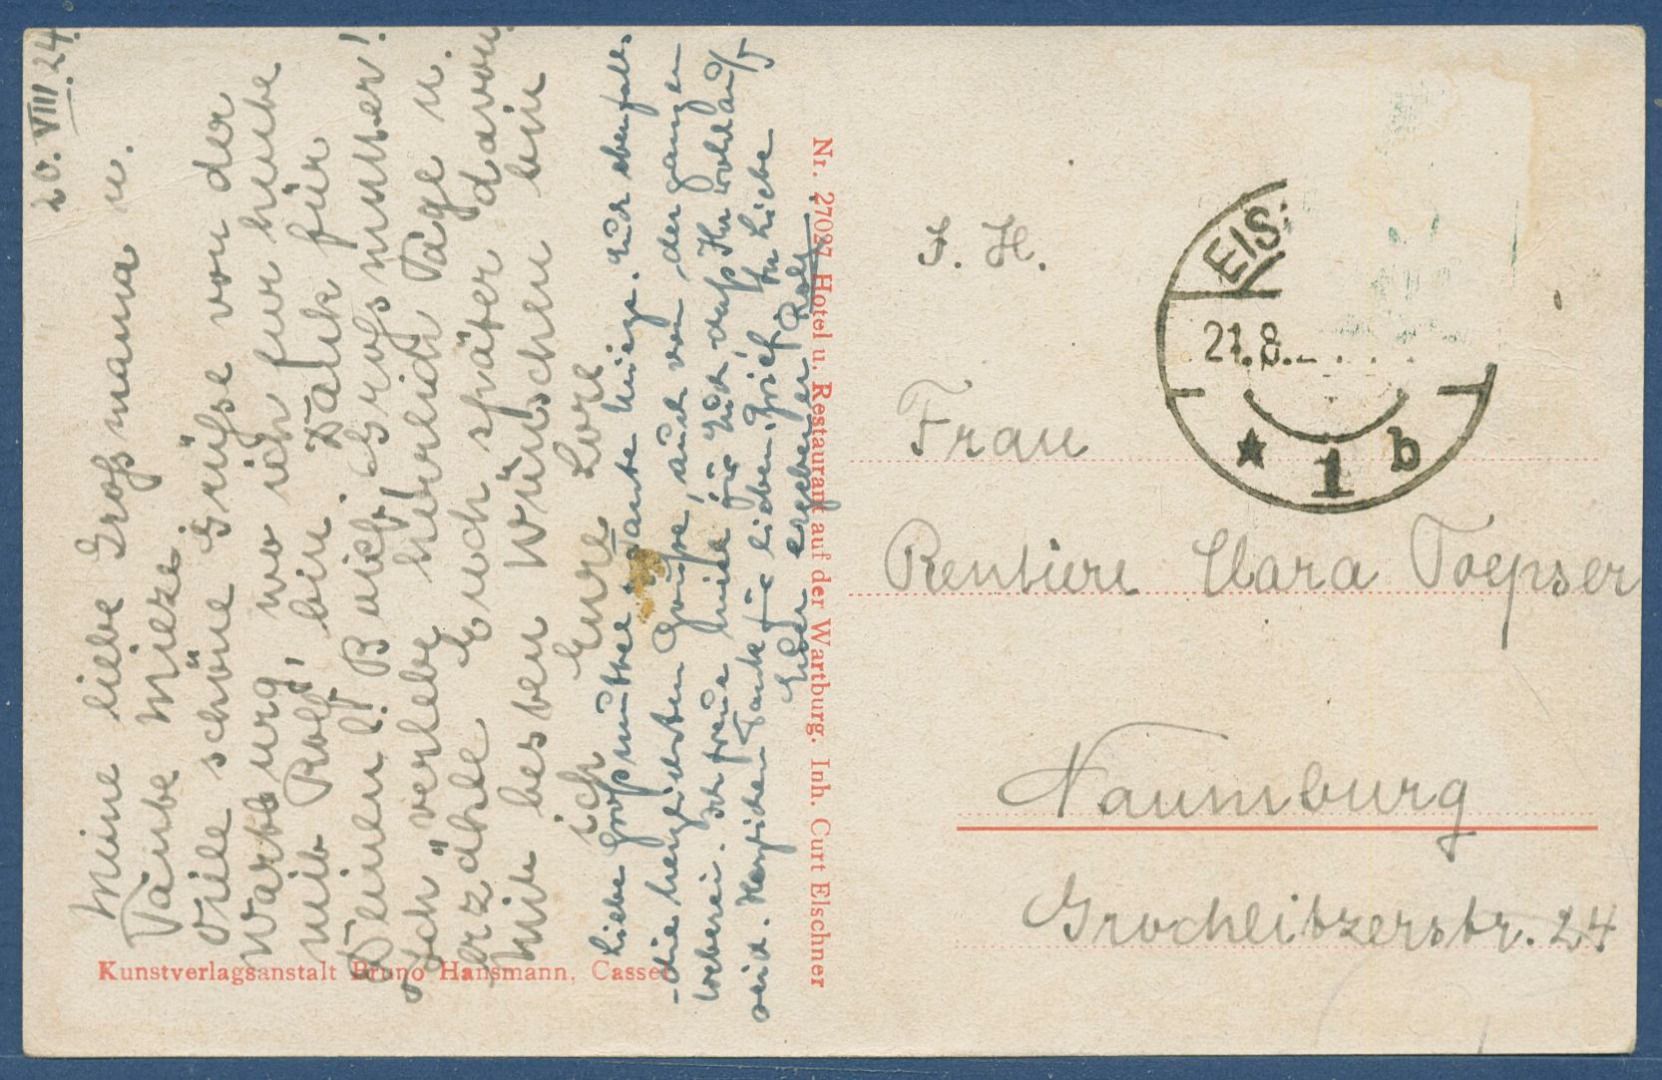 20. VIII. 24.
Meine liebe Großmama u.
Tante Mieze.
Viele schöne Grüße von der
Wartburg, wo ich für heute
mit Rolf, bin. Dank für
Deinen l. Brief, Großmutter!
Ich verlebe herrlich Tage u.
erzähle Euch später davon.
Mit besten Wünschen bin
ich Eure Lore
Liebe Großmutter u. Tante Mieze. Auch ebenfalls
die herzlichsten Grüße, auch von der ganzen
Weberei. Ich freue mich daß Ihr wohlauf
seid. Herzlichen Dank für lieben Brief. In Liebe
Euer ergebener Rolf
Kunstverlagsanstalt Bruno Hansmann, Cassel
Nr. 27027 Hotel u. Restaurant auf der Wartburg. Inh. Curt Elschner
EIS
21.8.
1 b
Frau
Rentiere Clara Toepser
Naumburg
Grochlitzerstr. 24